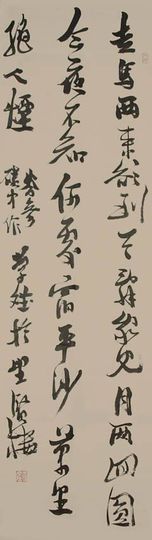 走馬西來欲到天辭家見月兩回圓
今夜不知何處宿平沙萬里
絕人煙
岑參
磧中作
於